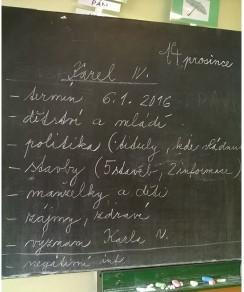 14 prosince
Karel IV.
- termín 6.1. 2016
- dětství a mládí
- politika (tituly, kde vládnul
- stavby (5 staveb, 2 informace)
- manželky a děti
- zájmy, zdraví
- význam Karla IV.
- negativní inf.